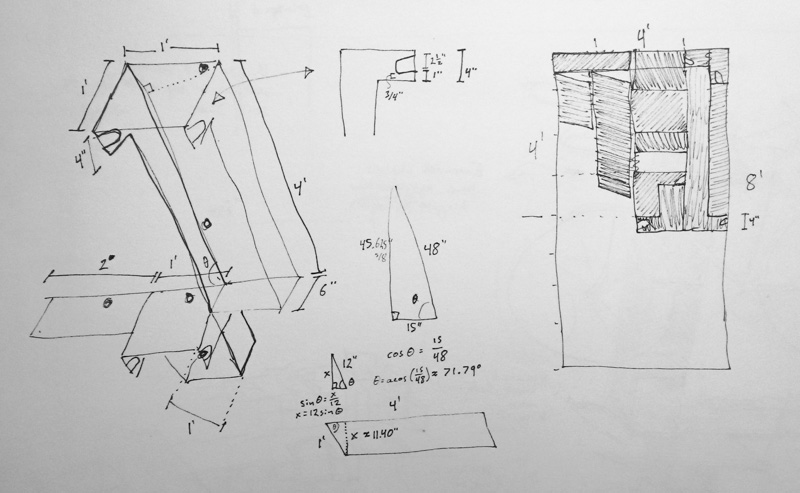 1'
1'
4"
4'
2"
1'
θ
θ
6"
1'
2½"
1"
4"
3/4"
45.615"
5/8
48"
θ
15"
cos θ = 15/48
θ = acos(15/48) ≈ 71.79°
x
12"
θ
sin θ = x/12
x = 12 sin θ
4'
1'
θ
x ≈ 11.40"
4'
4'
8'
4"